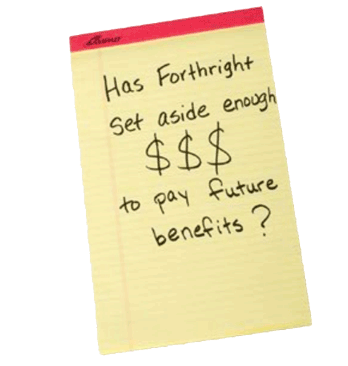 Has Forthright
Set aside enough
$$$
to pay future
benefits?